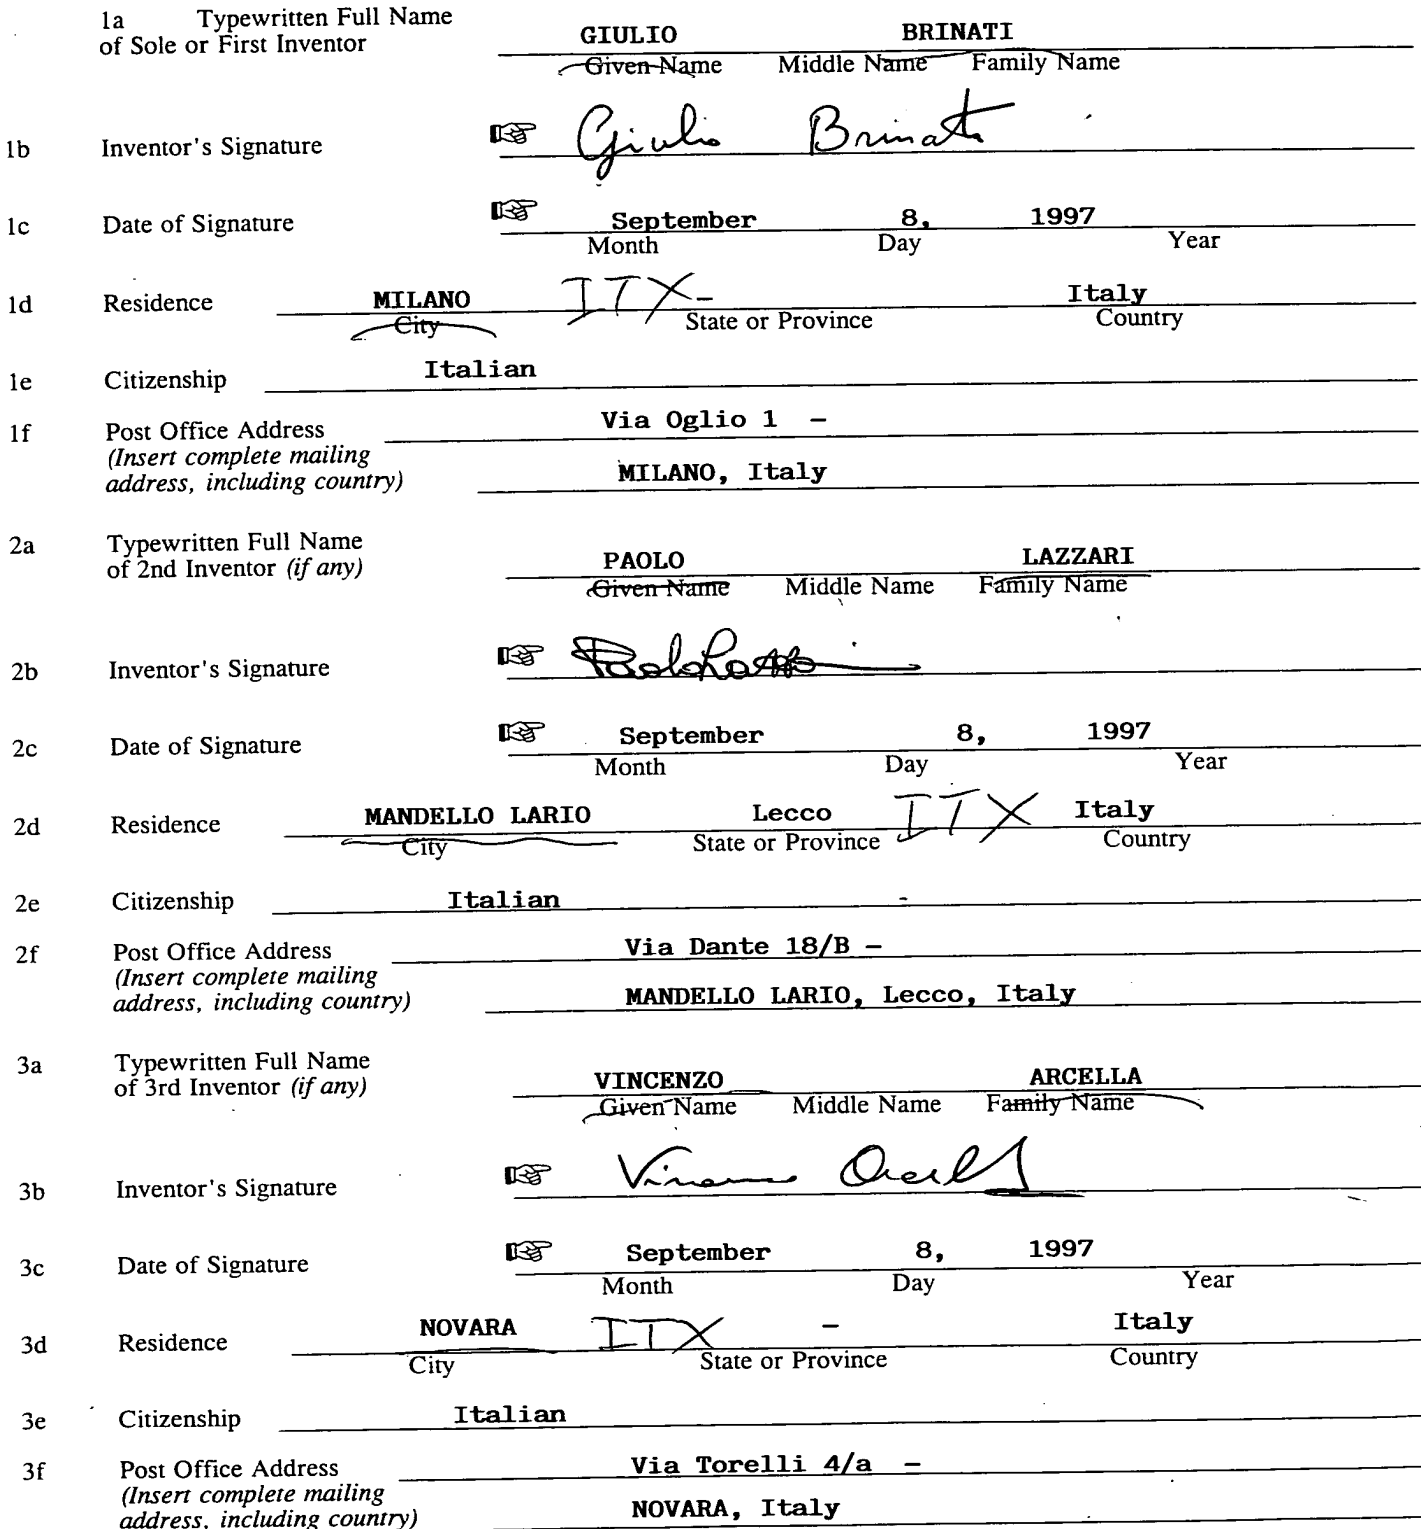 1a Typewritten Full Name
of Sole or First Inventor GIULIO BRINATI
Given Name Middle Name Family Name
1b Inventor's Signature Giulio Brinati
1c Date of Signature September 8, 1997
Month Day Year
1d Residence MILANO ITX - Italy
City State or Province Country
1e Citizenship Italian
1f Post Office Address Via Oglio 1 -
(Insert complete mailing
address, including country) MILANO, Italy
2a Typewritten Full Name
of 2nd Inventor (if any) PAOLO LAZZARI
Given Name Middle Name Family Name
2b Inventor's Signature
2c Date of Signature September 8, 1997
Month Day Year
2d Residence MANDELLO LARIO Lecco ITX Italy
City State or Province Country
2e Citizenship Italian -
2f Post Office Address Via Dante 18/B -
(Insert complete mailing
address, including country) MANDELLO LARIO, Lecco, Italy
3a Typewritten Full Name
of 3rd Inventor (if any) VINCENZO ARCELLA
Given Name Middle Name Family Name
3b Inventor's Signature
3c Date of Signature September 8, 1997
Month Day Year
3d Residence NOVARA ITX - Italy
City State or Province Country
3e Citizenship Italian
3f Post Office Address Via Torelli 4/a -
(Insert complete mailing
address, including country) NOVARA, Italy